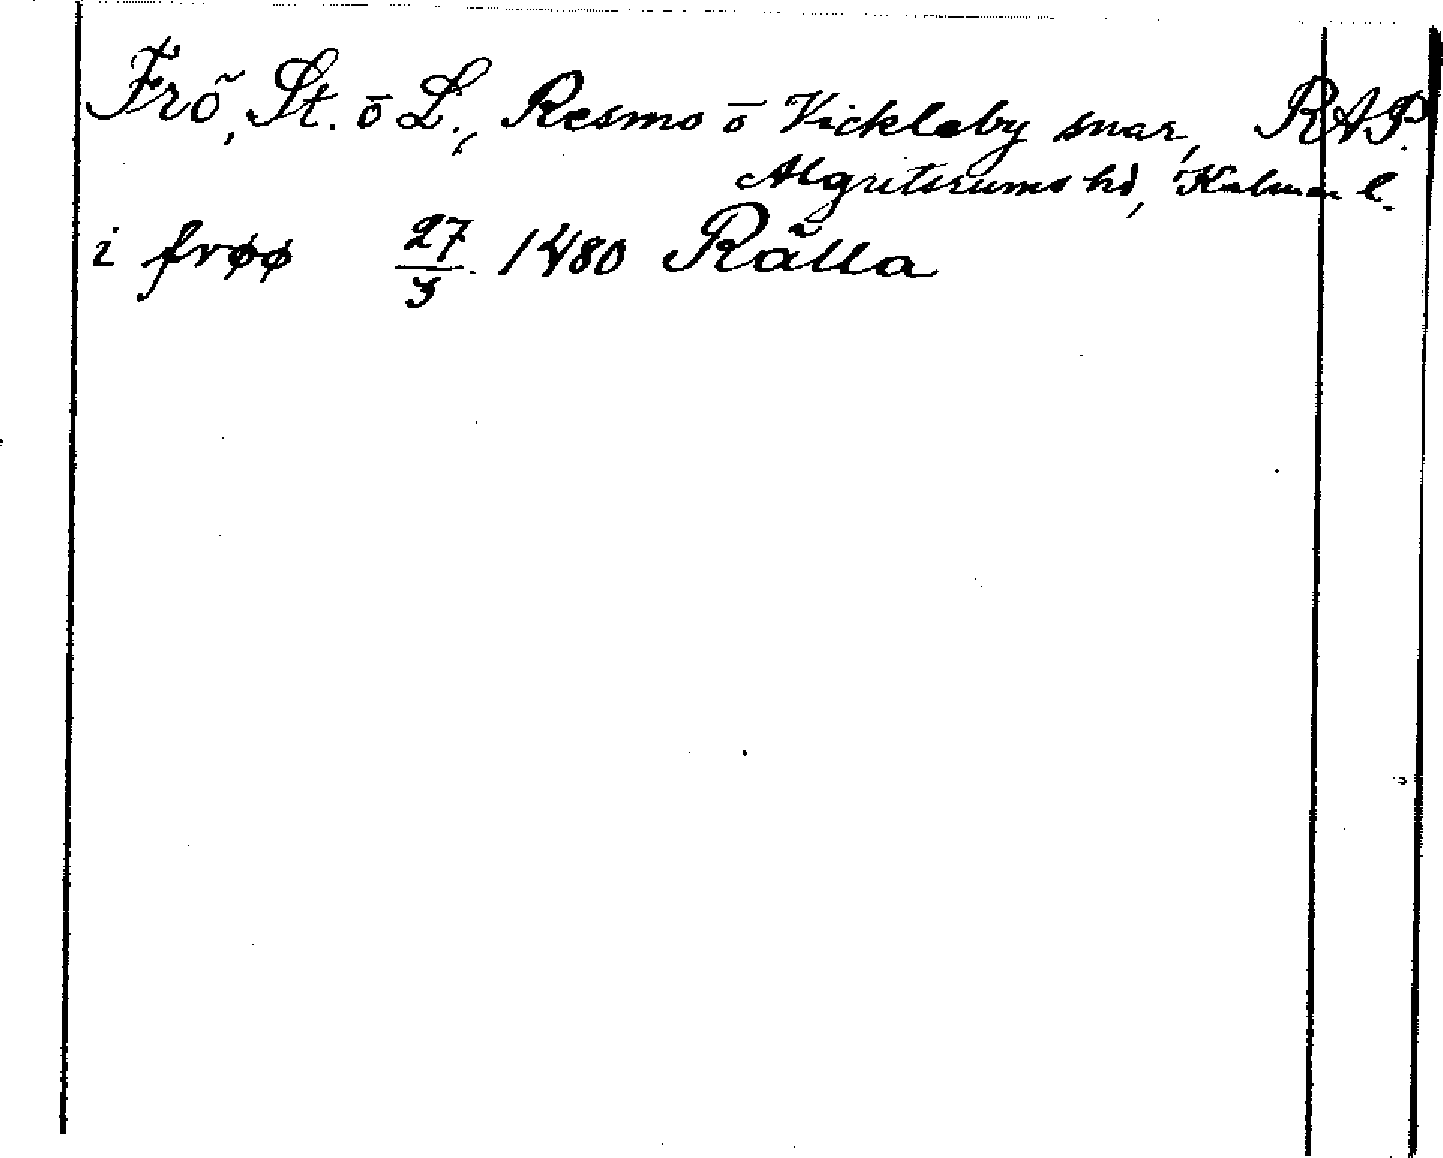 Frö, St. o L., Resmo o Vickleby snar, RAP.
Algutsrums hd, Kalmar l.
i frøø 27/5 1480 Rälla